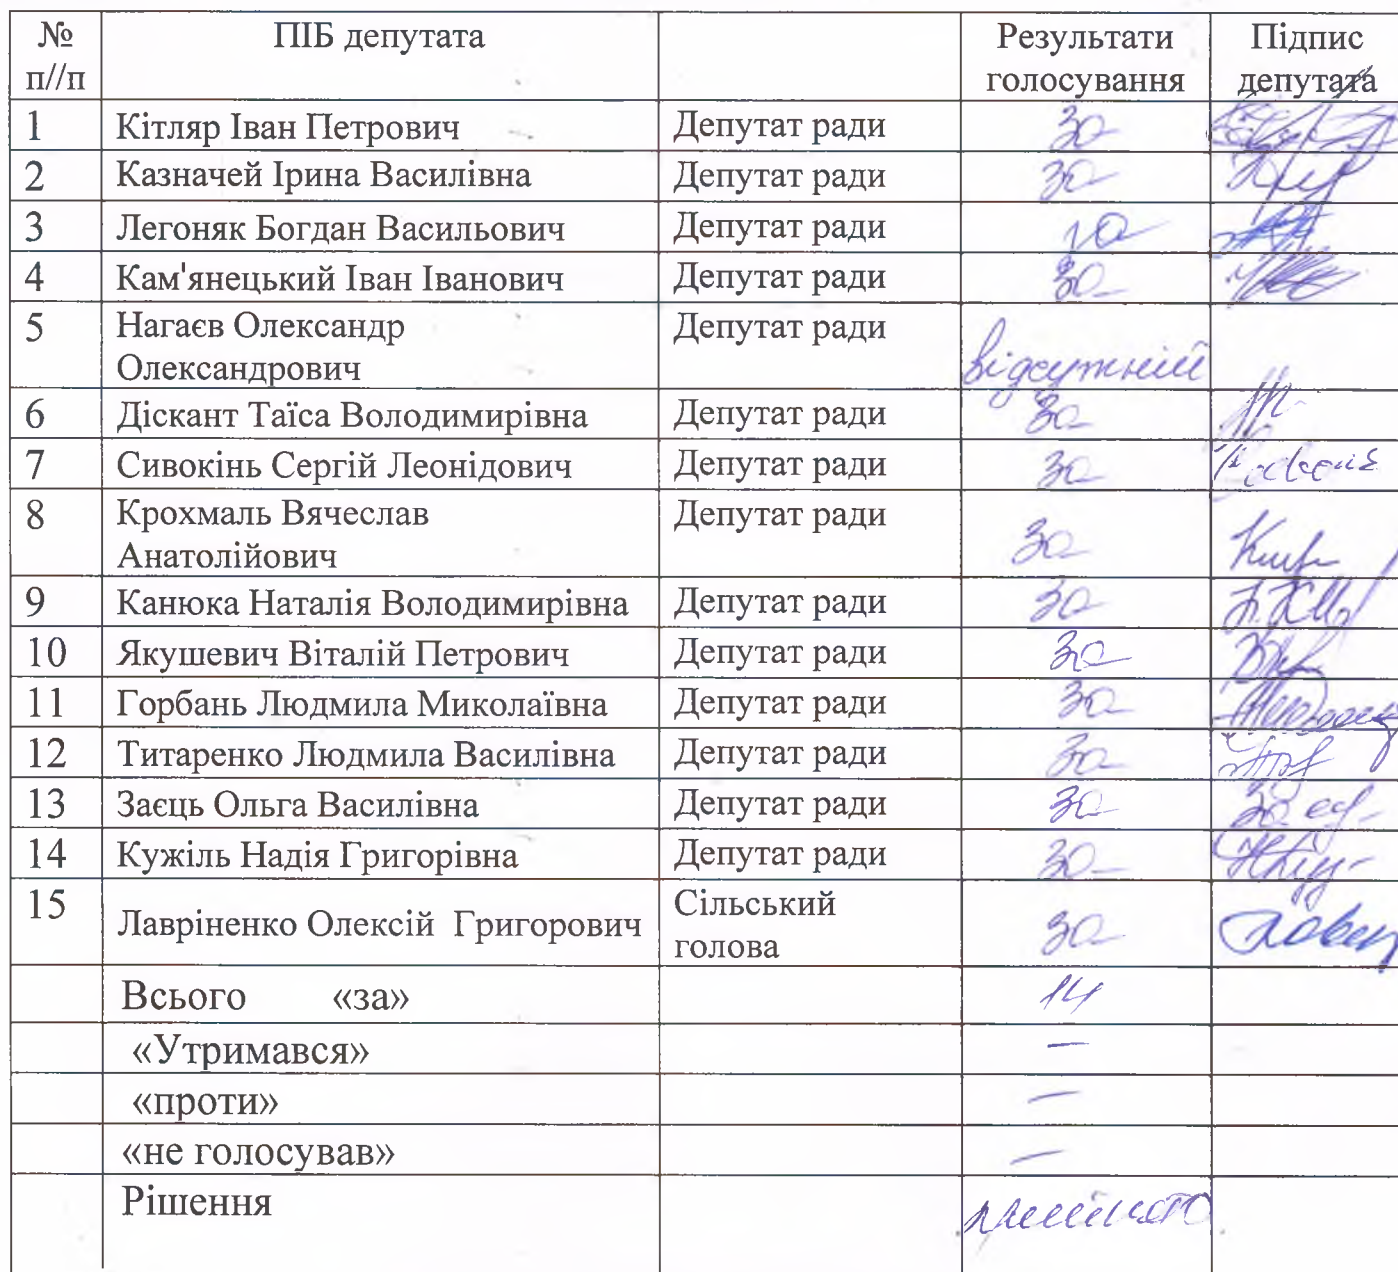 № ПІБ депутата Результати Підпис
п//п голосування депутата
1 Кітляр Іван Петрович Депутат ради за
2 Казначей Ірина Василівна Депутат ради за
3 Легоняк Богдан Васильович Депутат ради за
4 Кам'янецький Іван Іванович Депутат ради за
5 Нагаєв Олександр Депутат ради
Олександрович відсутній
6 Діскант Таїса Володимирівна Депутат ради за
7 Сивокінь Сергій Леонідович Депутат ради за
8 Крохмаль Вячеслав Депутат ради
Анатолійович за
9 Канюка Наталія Володимирівна Депутат ради за
10 Якушевич Віталій Петрович Депутат ради за
11 Горбань Людмила Миколаївна Депутат ради за
12 Титаренко Людмила Василівна Депутат ради за
13 Заєць Ольга Василівна Депутат ради за
14 Кужіль Надія Григорівна Депутат ради за
15 Лавріненко Олексій Григорович Сільський
голова за
Всього «за» 14
«Утримався» —
«проти» —
«не голосував» —
Рішення прийнято